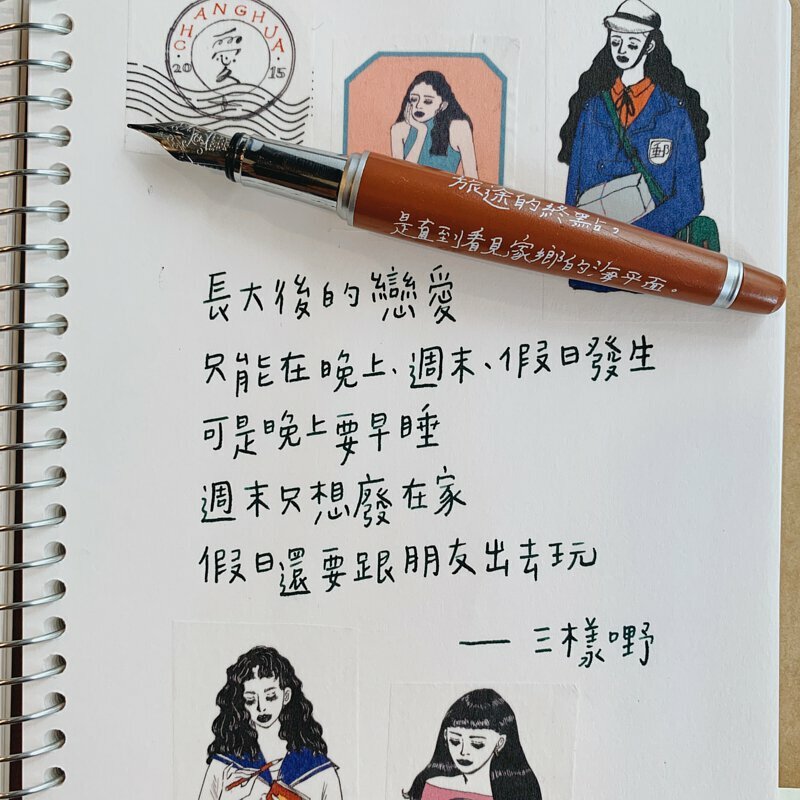 CHANGHUA
愛
2015
郵
旅途的終點，
是直到看見家鄉的海平面。
長大後的戀愛
只能在晚上、週末、假日發生
可是晚上要早睡
週末只想廢在家
假日還要跟朋友出去玩
— 三樣嘢